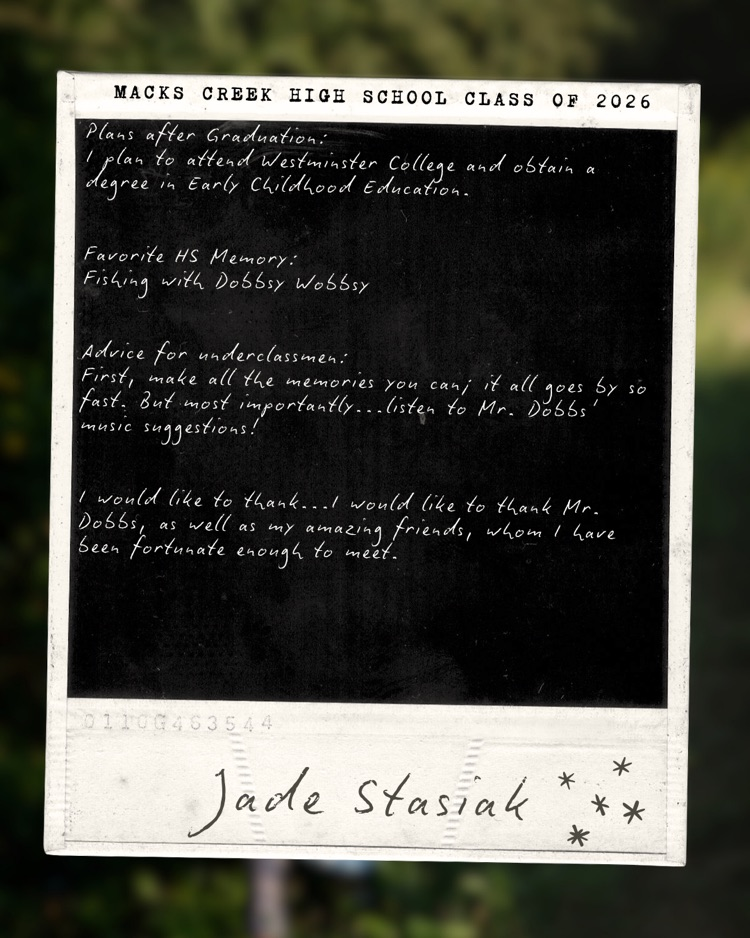 MACKS CREEK HIGH SCHOOL CLASS OF 2026
Plans after Graduation:
I plan to attend Westminster College and obtain a
degree in Early Childhood Education.
Favorite HS Memory:
Fishing with Dobbsy Wobbsy
Advice for underclassmen:
First, make all the memories you can; it all goes by so
fast. But most importantly...listen to Mr. Dobbs'
music suggestions!
I would like to thank...I would like to thank Mr.
Dobbs, as well as my amazing friends, whom I have
been fortunate enough to meet.
0110G463544
Jade Stasiak